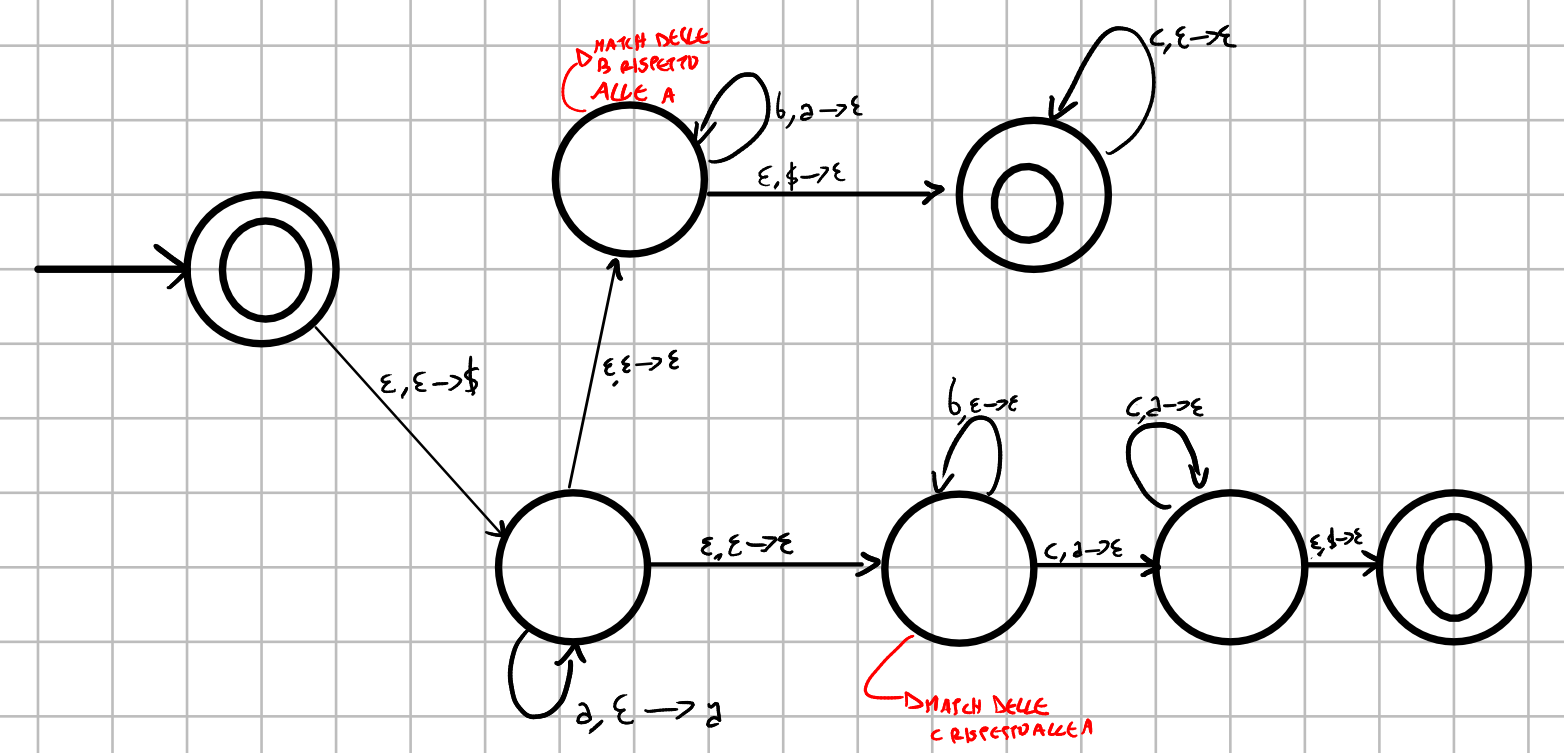 MATCH DELLE
B RISPETTO
ALLE A
b, a → ε
c, ε → ε
ε, $ → ε
ε, ε → $
ε, ε → ε
b, ε → ε
c, a → ε
ε, ε → ε
c, a → ε
ε, $ → ε
a, ε → a
MATCH DELLE
C RISPETTO ALLE A